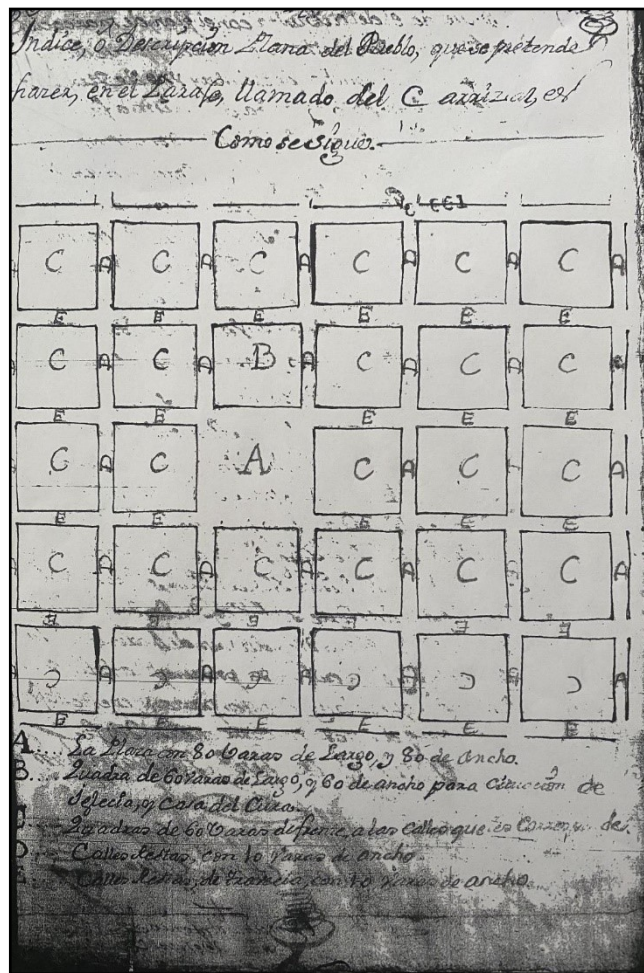 Indice, ó Descripcion Plana del Pueblo, que se pretende
hazer, en el Paraje, llamado del Carrizal, es
Como se sigue.
C D C D C D C D C D C D
E E E E E
C D C D B D C D C D C
E E E E E
C D C A C D C C D
E E E E E
C D C D C D C D C C D
E E E E E E
C D C D C D C D C D C D
E E E E E E
A.... La Plaza con 80 Varas de Largo, y 80 de ancho.
B... Quadra de 60 varas de Largo, y 60 de ancho para cituacion de
Iglecia, y Casa del Cura.
Quadras de 60 Varas de frente, a las Calles que les Corresponde.
D Calles Rectas, con 10 varas de ancho
E Calles Rectas, de travecia, con 10 varas de ancho.